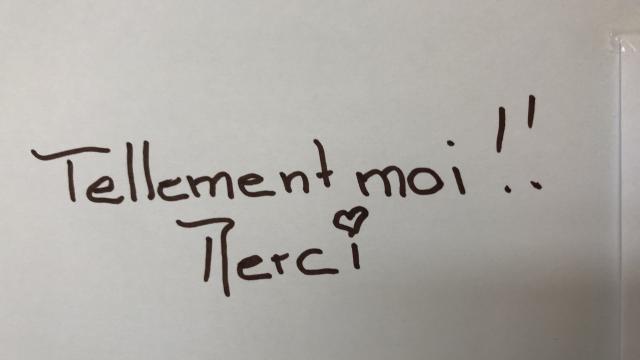 Tellement moi !!
Merci